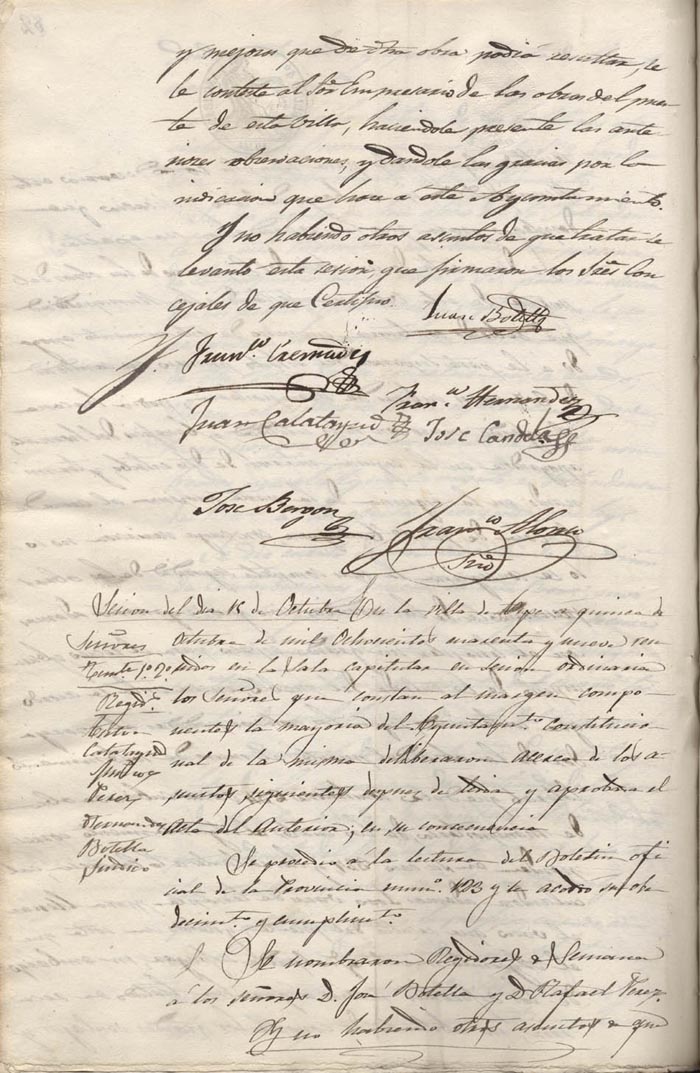 y mejoras que de dha obra podia resultar, se
le conteste al Sor Empresario de las obras del puen-
te de esta Villa, haciendole presente las ante-
riores observaciones, y dandole las gracias por la
indicacion que hace a este Ayuntamiento.
Y no habiendo otros asuntos de que tratar se
levanto esta sesion, que firmaron los Sres Con-
cejales de que Certifico.
Juan Botella
Franco. Cremades
Franco. Hernandez
Juan Calatayud
Jose Candela
Jose Bergon
Franco. Alonso
Srio
Sesion del dia 15 de Octubre
En la Villa de Aspe a quince de
Octubre de mil Ochocientos cuarenta y nueve reu-
nidos en la Sala capitular en sesion ordinaria
los Señores que constan al margen compo-
nentes la mayoria del Ayuntamto. Constitucio-
nal de la misma deliberaron acerca de los a-
suntos siguientes despues de leida y aprobada el
Acta del Anterior, en su consecuencia
Señores
Tente. 1º. 2º
Regid.s
Calatayud
Perez
Hernandez
Botella
Sindico
Se procedio á la lectura del Boletin ofi-
cial de la Provincia num.º 123 y se acordó su obe-
decimto. y cumplimto.
Se nombraron Regidores de Semana
á los señores D. José Botella y D Rafael Perez.
Y no habiendo otros asuntos de que